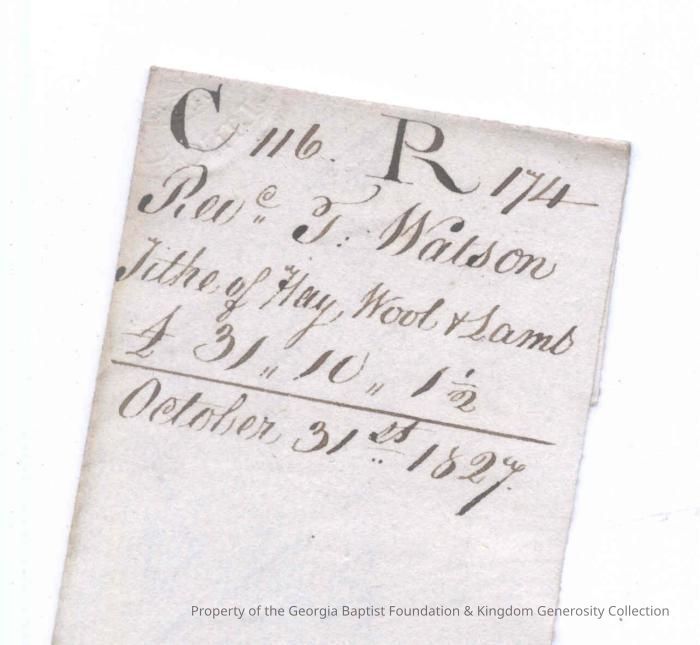 C 116. R 174
Revd. T. Watson
Tithe of Hay, Wool & Lamb
£ 31 " 10 " 1 1/2
October 31st 1827.
Property of the Georgia Baptist Foundation & Kingdom Generosity Collection